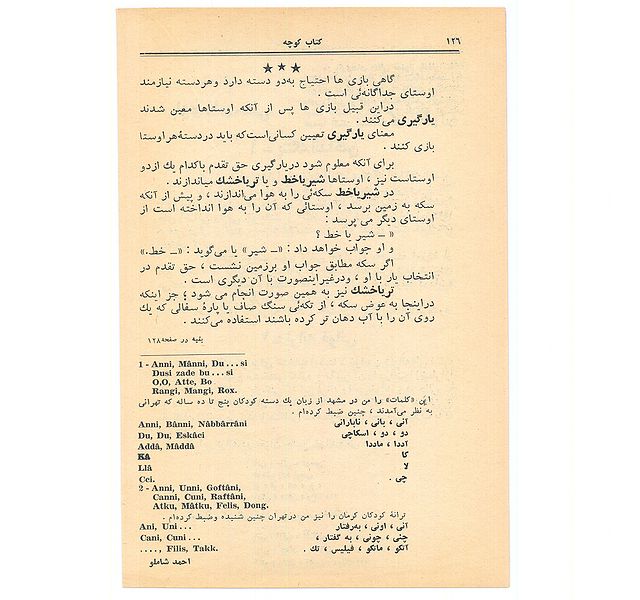 ۱۲٦ کتاب کوچه
★ ★ ★
گاهی بازی ها احتیاج به‌دو دسته دارد وهردسته نیازمند
اوستای جداگانه‌ئی است .
دراین قبیل بازی ها پس از آنکه اوستاها معین شدند
یارگیری می‌کنند .
معنای یارگیری تعیین کسانی‌است‌که باید دردستهٔ‌هراوستا
بازی کنند .
برای آنکه معلوم شود دریارگیری حق تقدم باکدام یك ازدو
اوستاست نیز ، اوستاها شیریاخط و یا ترياخشك میاندازند .
در شیریاخط سکه‌ئی را به هوا می‌اندازند ، و پیش از آنکه
سکه به زمین برسد ، اوستائی که آن را به هوا انداخته است از
اوستای دیگر می پرسد :
«ــ شیر یا خط ؟
و او جواب خواهد داد : «ــ شیر» یا می‌گوید : «ــ خط.»
اگر سکه مطابق جواب او برزمین نشست ، حق تقدم در
انتخاب یار با او ، ودرغیراینصورت با آن دیگری است .
ترياخشك نیز به همین صورت انجام می شود ؛ جز اینکه
دراینجا به عوض سکه ، از تکه‌ئی سنگ صاف یا پارهٔ سفالی که یك
روی آن را با آب دهان تر کرده باشند استفاده می‌کنند .
بقیه در صفحه ۱۲۸
1 - Anni, Mânni, Du . . . si
Dusi zade bu . . . si
O,O, Atte, Bo
Rangi, Mangi, Rox.
این «کلمات» را من در مشهد از زبان یك دسته کودکان پنج تا ده ساله که تهرانی
به نظر می‌آمدند ، چنین ضبط کرده‌ام .
Anni, Bânni, Nâbbârrâni آنی ، بانی ، نابارانی
Du, Du, Eskâci دو ، دو ، اسکاچی
Addâ, Mâddâ آددا ، ماددا
Kâ کا
Llâ لا
Cei. چی .
2 - Anni, Unni, Goftâni,
Canni, Cuni, Raftâni,
Atku, Mâtku, Felis, Dong.
ترانهٔ کودکان کرمان را نیز من درتهران چنین شنیده وضبط کرده‌ام
Ani, Uni . . . آنی ، اونی ، به‌رفتار
Cani, Cuni . . . چنی ، چونی ، به گفتار ،
. . . ., Filis, Takk. آتکو ، ماتکو ، فیلیس ، تك .
احمد شاملو